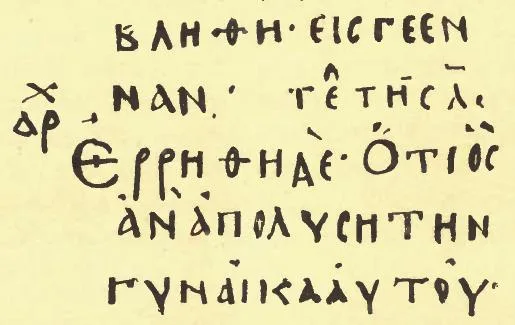 ΒΛΗΘΗ· ΕΙϹ ΓΕΕΝ
ΑΡΧ
ΝΑΝ·
ΕΡΡΗΘΗ ΔΕ· ΟΤΙ ΟϹ
ΑΝ ΑΠΟΛΥϹΗ ΤΗΝ
ΓΥΝΑΙΚΑ ΑΥΤΟΥ·